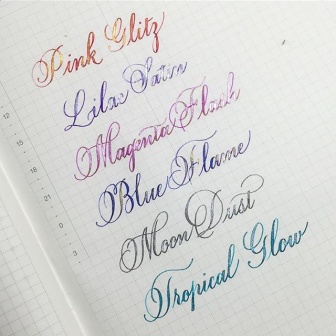 Pink Glitz
Lilac Satin
Magenta Flash
Blue Flame
Moon Dust
Tropical Glow
12
15
18
21
0
3